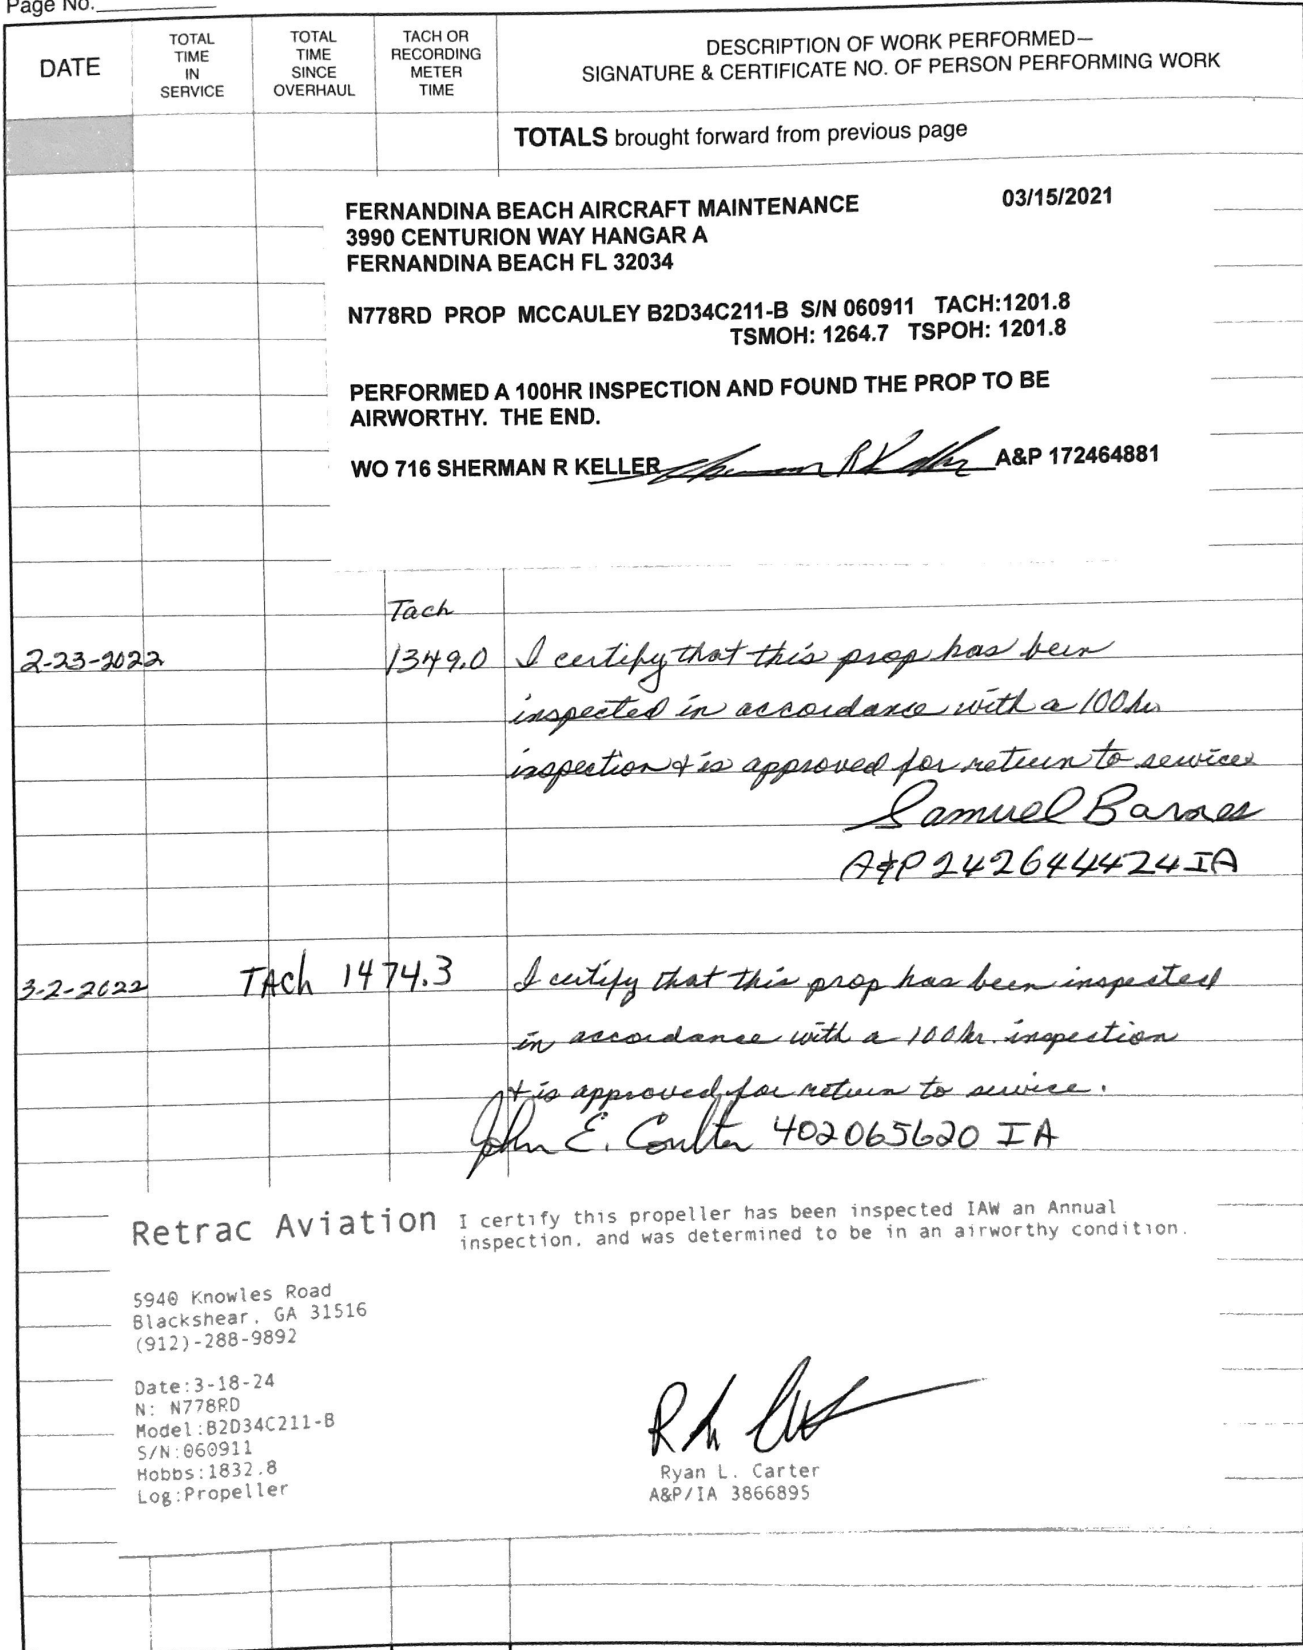 Page No.
DATE
TOTAL
TIME
IN
SERVICE
TOTAL
TIME
SINCE
OVERHAUL
TACH OR
RECORDING
METER
TIME
DESCRIPTION OF WORK PERFORMED—
SIGNATURE & CERTIFICATE NO. OF PERSON PERFORMING WORK
TOTALS brought forward from previous page
FERNANDINA BEACH AIRCRAFT MAINTENANCE 03/15/2021
3990 CENTURION WAY HANGAR A
FERNANDINA BEACH FL 32034
N778RD PROP MCCAULEY B2D34C211-B S/N 060911 TACH:1201.8
TSMOH: 1264.7 TSPOH: 1201.8
PERFORMED A 100HR INSPECTION AND FOUND THE PROP TO BE
AIRWORTHY. THE END.
WO 716 SHERMAN R KELLER Sherman R Keller A&P 172464881
Tach
2-23-2022 1349.0 I certify that this prop has been
inspected in accordance with a 100 hr
inspection & is approved for return to service
Samuel Barnes
A&P 242644424 IA
3-2-2022 TAch 1474.3 I certify that this prop has been inspected
in accordance with a 100 hr. inspection
& is approved for return to service.
John E. Coulter 402065620 IA
Retrac Aviation I certify this propeller has been inspected IAW an Annual
inspection, and was determined to be in an airworthy condition.
5940 Knowles Road
Blackshear, GA 31516
(912)-288-9892
Date:3-18-24
N: N778RD
Model:B2D34C211-B
S/N:060911
Hobbs:1832.8
Log:Propeller
Ryan L. Carter
A&P/IA 3866895